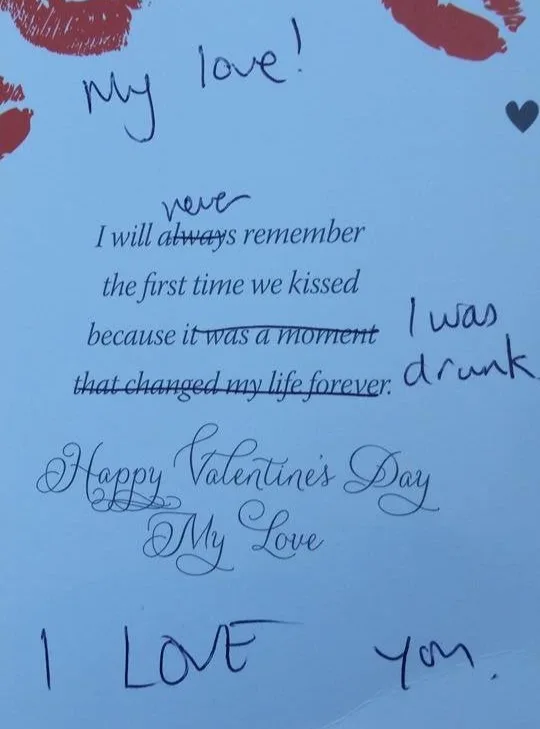 My love!
never
I will always remember
the first time we kissed
because it was a moment I was
that changed my life forever. drunk
Happy Valentine's Day
My Love
I LOVE You.